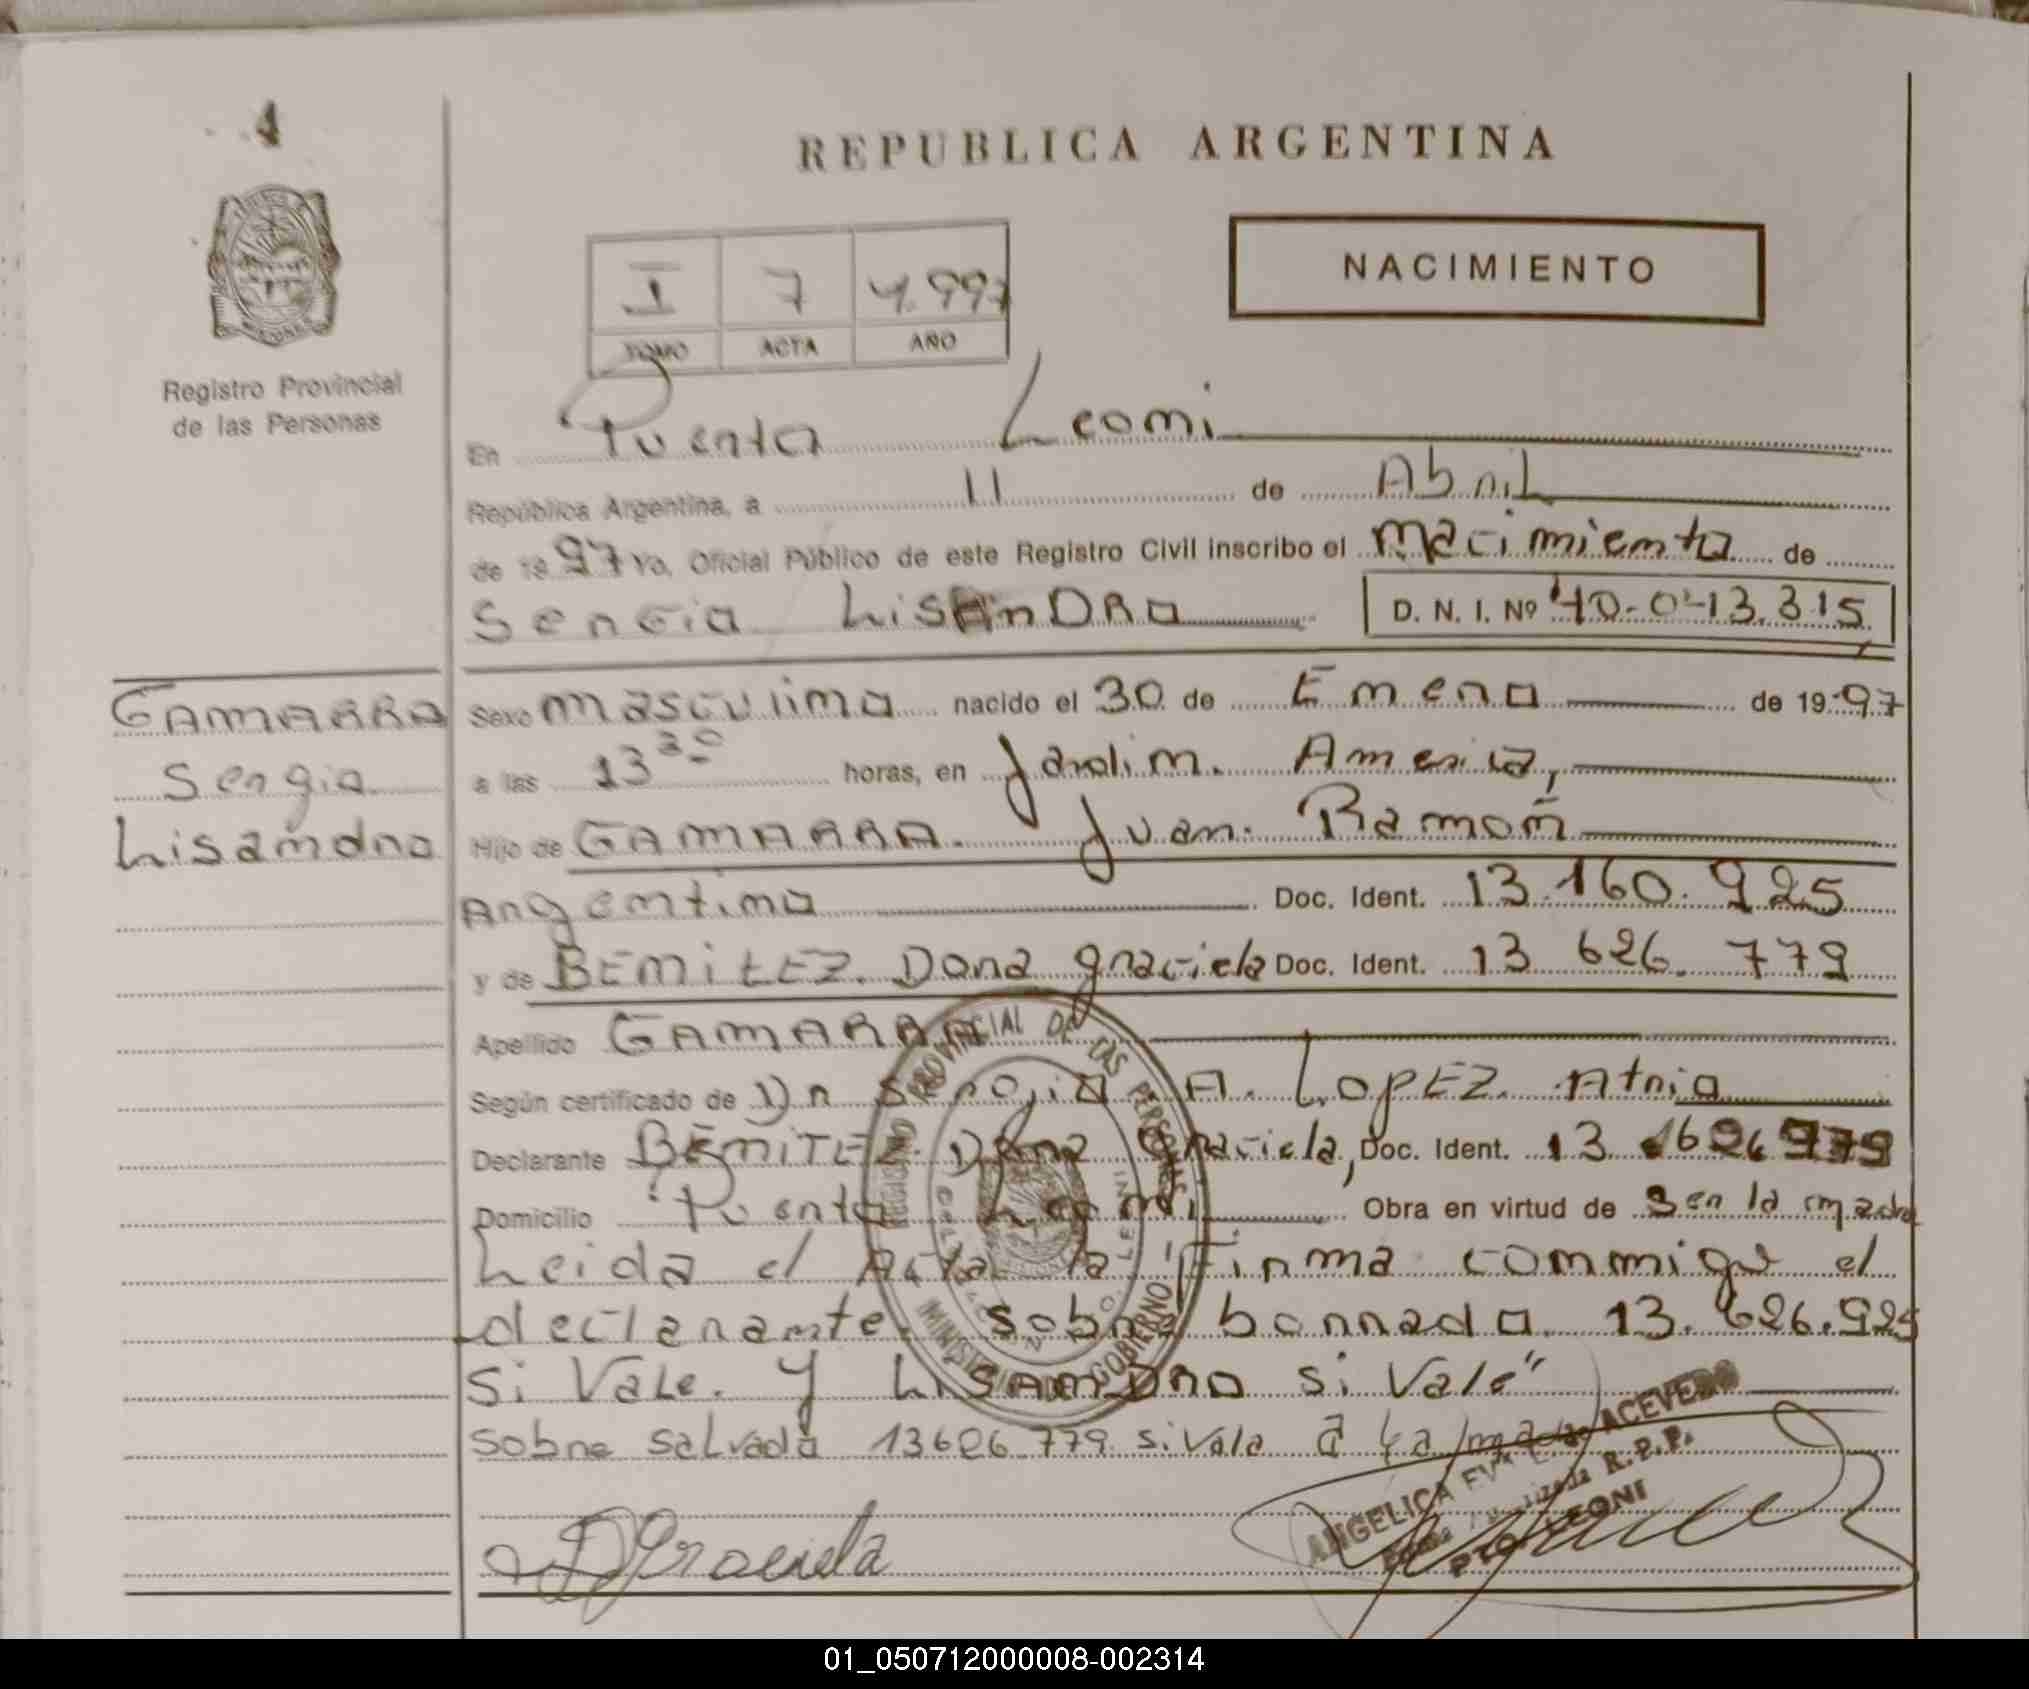 4
REPUBLICA ARGENTINA
NACIMIENTO
I 7 1.997
TOMO ACTA AÑO
Registro Provincial
de las Personas
En Puerto Leoni
República Argentina, a 11 de Abril
de 1997 Yo, Oficial Público de este Registro Civil inscribo el nacimiento de
Sergio LisAnDRO D. N. I. Nº 40.043.315
GAMARRA
Sergio
Lisandro
Sexo masculino nacido el 30 de Enero de 1997
a las 13 30 horas, en Jardin. America,
Hijo de GAMARRA. Juan. Ramón
Argentino Doc. Ident. 13.160.925
y de BENITEZ. Dora graciela Doc. Ident. 13 626. 779
Apellido GAMARRA
Según certificado de Dr Sergio A. LOPEZ. Atrio
Declarante BENITEZ. Dora Graciela, Doc. Ident. 13
Domicilio Puerto Leoni Obra en virtud de Ser la madre
Leida el Acta la Firma conmigo el
declarante. Sobre borrado 13. 626.925
Si Vale. Y LISANDRO si Vale"
Sobre Salvado 13626.779 si Vale
DGraciela
ANGELICA ACEVEDO
R.P.P.
PTO. LEONI
REGISTRO PROVINCIAL DE LAS PERSONAS
MINISTERIO GOBIERNO
01_050712000008-002314